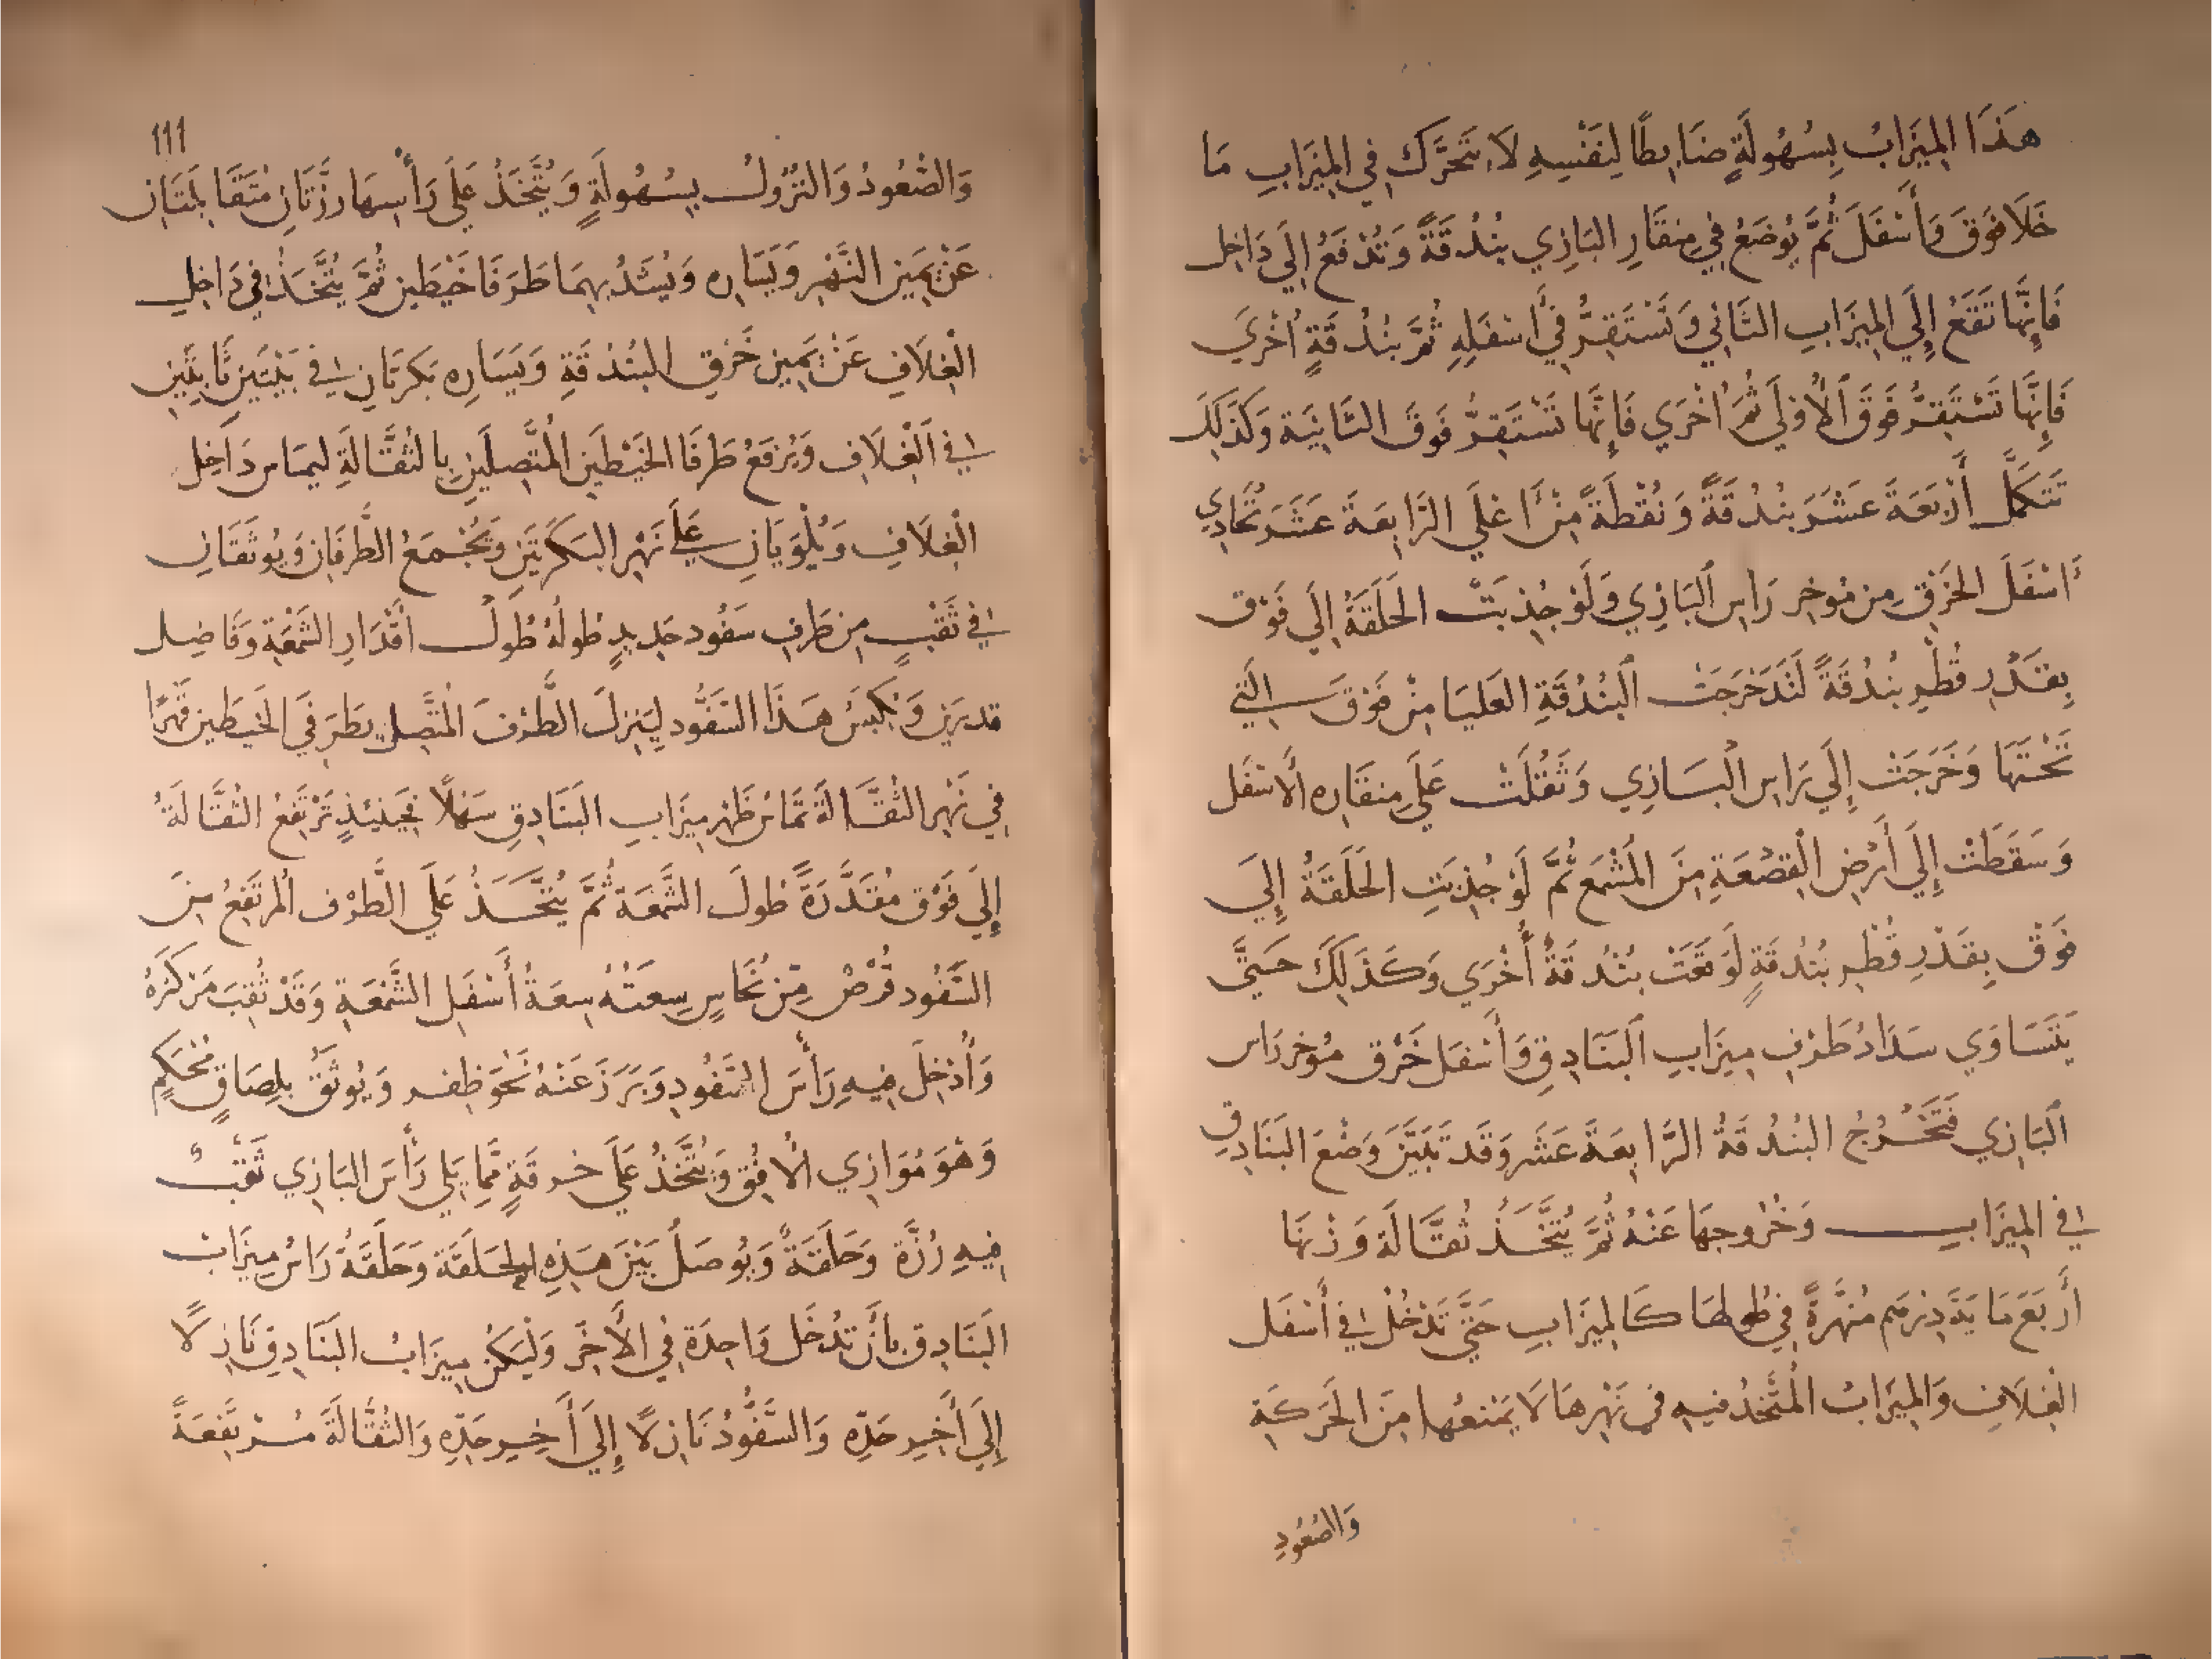 هَذَا المِيَزابُ بِسُهُولَةٍ ضَابطًا لِنَفْسِهِ لَا يَتَحَرَّك فِي المِيَزَابِ مَا
خَلَا فَوَقَ وَأَسْفَلَ ثُمَّ يُوضَعُ فِي مِنقَارِ البَازِي بُنْدُقَةً وَتُدْفَعُ إِلَي دَاخِل
فَإِنَّها تَقَعُ إِلَي المِيَزابِ الثَانِي وَتَسْتَقِرُّ فِي أَسْفَلِهِ ثُمَّ بُنْدُقَةٍ أُخْرَي
فَإِنَّها تَسْتَقِرُّ فَوَقَ الأُولَي ثُمَ أُخْرَي فَإِنَّها تَسْتَقِرُّ فَوَقَ الثَانِيَة وَكَذَلِكَ
تَتَكَمَّل أَرْبَعَةَ عَشَرَ بُنْدُقَةً وَنُقْطَةً مِنْ أَعْلَي الرَّابِعَةَ عَشَرَ تُحَادِي
أَسْفَلَ الخَرْقِ مِن مُوخِر رَاسِ البَازِي وَلَوْ جُذِبَتْ الحَلَقَةُ إِلَي فَوْق
بِقَدْرِ قُطْرِ بُنْدُقَةً لَتَدَحْرَجَتْ البُنْدُقَةِ العَليَا مِنْ فَوْق الَّتِي
تَحْتَهَا وَخَرَجَتْ إِلَي رَاسِ البَازِي وَثَقُلَتْ عَلَي مِنقَارِه الأَسْفَل
وَسَقَطَتْ إِلَي أَرْضِ القِصْعَةِ مِنَ المَشْمَع ثُمَّ لَوْ جُذِبَتِ الحَلَقَةُ إِلَي
فَوْق بِقَدْرِ قُطْرِ بُنْدُقَةٍ لَوَقَعَتْ بُنْدُقَةٌ أُخْرَي وَكَذَلِكَ حَتَّي
يَتَسَاوَي سَدَادُ طَرْفِ مِيزَابِ البَنَادِقِ وَأَسْفَلَ خَرْق مُوخر رَاس
البَازِي فَتَخْرُجُ البُنْدُقَةُ الرَّابِعَةَ عَشَر وَقَد تَبَيَّنَ وَضْعَ البَنَادِقِ
فِي المِيَزابِ وَخُرُوجهَا عَنْهُ ثُمَّ يُتَّخَذُ ثُقَّالَةَ وَزْنَهَا
أَرْبَعَ مَايَةَ دِرْهَم مُنْهَرَةً فِي طُولهَا كَالمِيَزابِ حَتَّي تَدْخُلَ فِي أَسْفَل
الغِلَافِ وَالمِيَزَابُ المُتَّخَذُ فِيهِ فِي نَهْرهَا لَا يَمْنَعُها مِنَ الحَرَكَةِ
وَالصُعُودِ
١١١
وَالصُعُودُ وَالنزُولُ بِسُهُولَةٍ وَيُتَّخَذُ عَلَي رَأْسِهَا رزَّتَانِ مُتَقَابِلَتَانِ
عَنْ يَمِينِ النَهْرِ وَيَسَارِهِ وَيُشَدُّ بِهِمَا طَرَفَا خَيْطَين ثُمَّ يُتَّخَذُ فِي دَاخِلِ
الغِلَافِ عَنْ يَمِينِ خَرْقِ البُنْدُقَةِ وَيَسَارِهِ بَكَرَتَانِ فِي بَيْتَيْنِ ثَابِتَيْنِ
فِي الغِلَافِ وَيُرْفَعُ طَرَفَا الخَيْطَينِ المُتَّصِلَينِ بِالثُقَّالَةِ لِيمَاس دَاخِل
الغِلَافِ وَيُلْوَيَانِ عَلَي نَهْرِ البَكَرَتَينِ وَيُجْمَعُ الطَّرَفَانِ وَيُوثَقَانِ
فِي ثَقْبٍ مِن طَرفِ سَفُودِ حَدِيدٍ طُولهُ طُولُ أَقْدَارِ الشَّمْعَةِ وَفَاضِل
قدرَين وَيُكْبَسُ هَذَا السَفُّود لِيَنزِلَ الطَرْفَ المُتَّصِل بطَرَفَي الخَيطَين قَهْرًا
فِي نَهْرِ الثُقَّالَة تَمَاسُ ظَهْر مِيَزابِ البَنَادِقِ سَهْلًا فَحِينَئِذٍ تَرْتَفِعُ الثُقَّالَةُ
إِلَي فَوْق مُقَدَّرَةً طُولَ الشَّمْعَة ثُمَّ يُتَّخَذُ عَلَي الطَّرْفِ المُرتَفِعُ مِنَ
السَّفُود قُرْصٌ مِنْ نُحَاسٍ سِعَتُهُ سِعَةُ أَسْفَلِ الشَّمْعَةِ وَقَدْ ثُقِبَ مَرْكَزهُ
وَأُدْخِلَ فِيهِ رَأْسَ السَّفُودِ وَبَرَزَ عَنْهُ نَحْوَ ظِفرِ وَيُوثَقُ بِلِصَاقٍ مُحْكَمٍ
وَهْوَ مُوَازِي الأُفُقِ وَيُتَّخَذُ عَلَي خرقَةٍ مِمَّا يَلِي رَأْسَ البَازِي ثَقْبٌ
فِيهِ رُزَّة وَحَلَقَةً وَيُوصَلُ بَيْنَ هَذِهِ الحَلقَة وَحَلَقَةُ رَاسُ مِيزَابُ
البَنَادِق بِأَنْ تُدْخَل وَاحِدَة فِي الأَخَر وَلْيَكُن مِيزَابُ البَنَادِق نَازِلًا
إِلَي أَخِرِ حَدِّه وَالسَّفُودُ نَازِلًا إِلَي أَخِرِ حَدِّهِ وَالثُقَّالَةَ مُرْتَفَعَةً